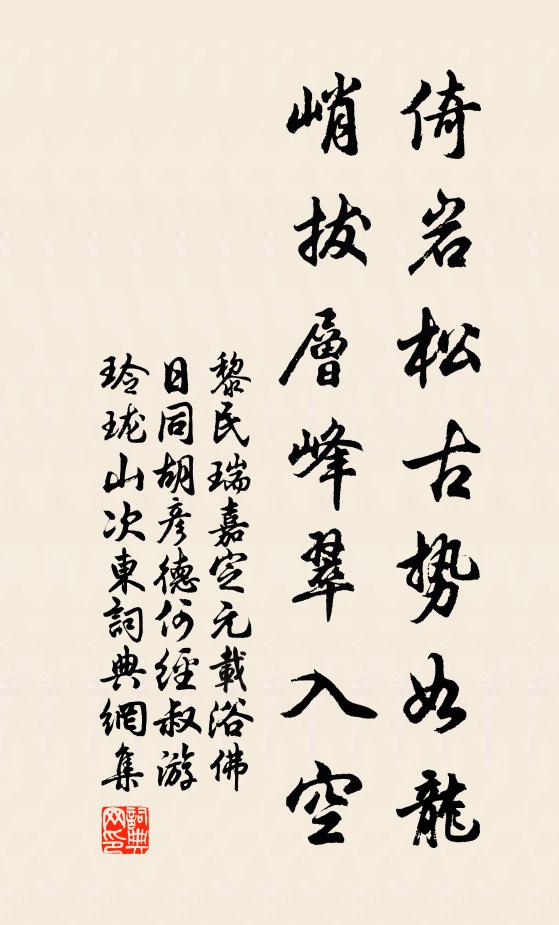 倚岩松古势如龍
峭拔層峰翠入空
黎民瑞嘉定元載浴佛
日同胡彦德何經叔游
玲珑山次東詞典網集
詞典
网印